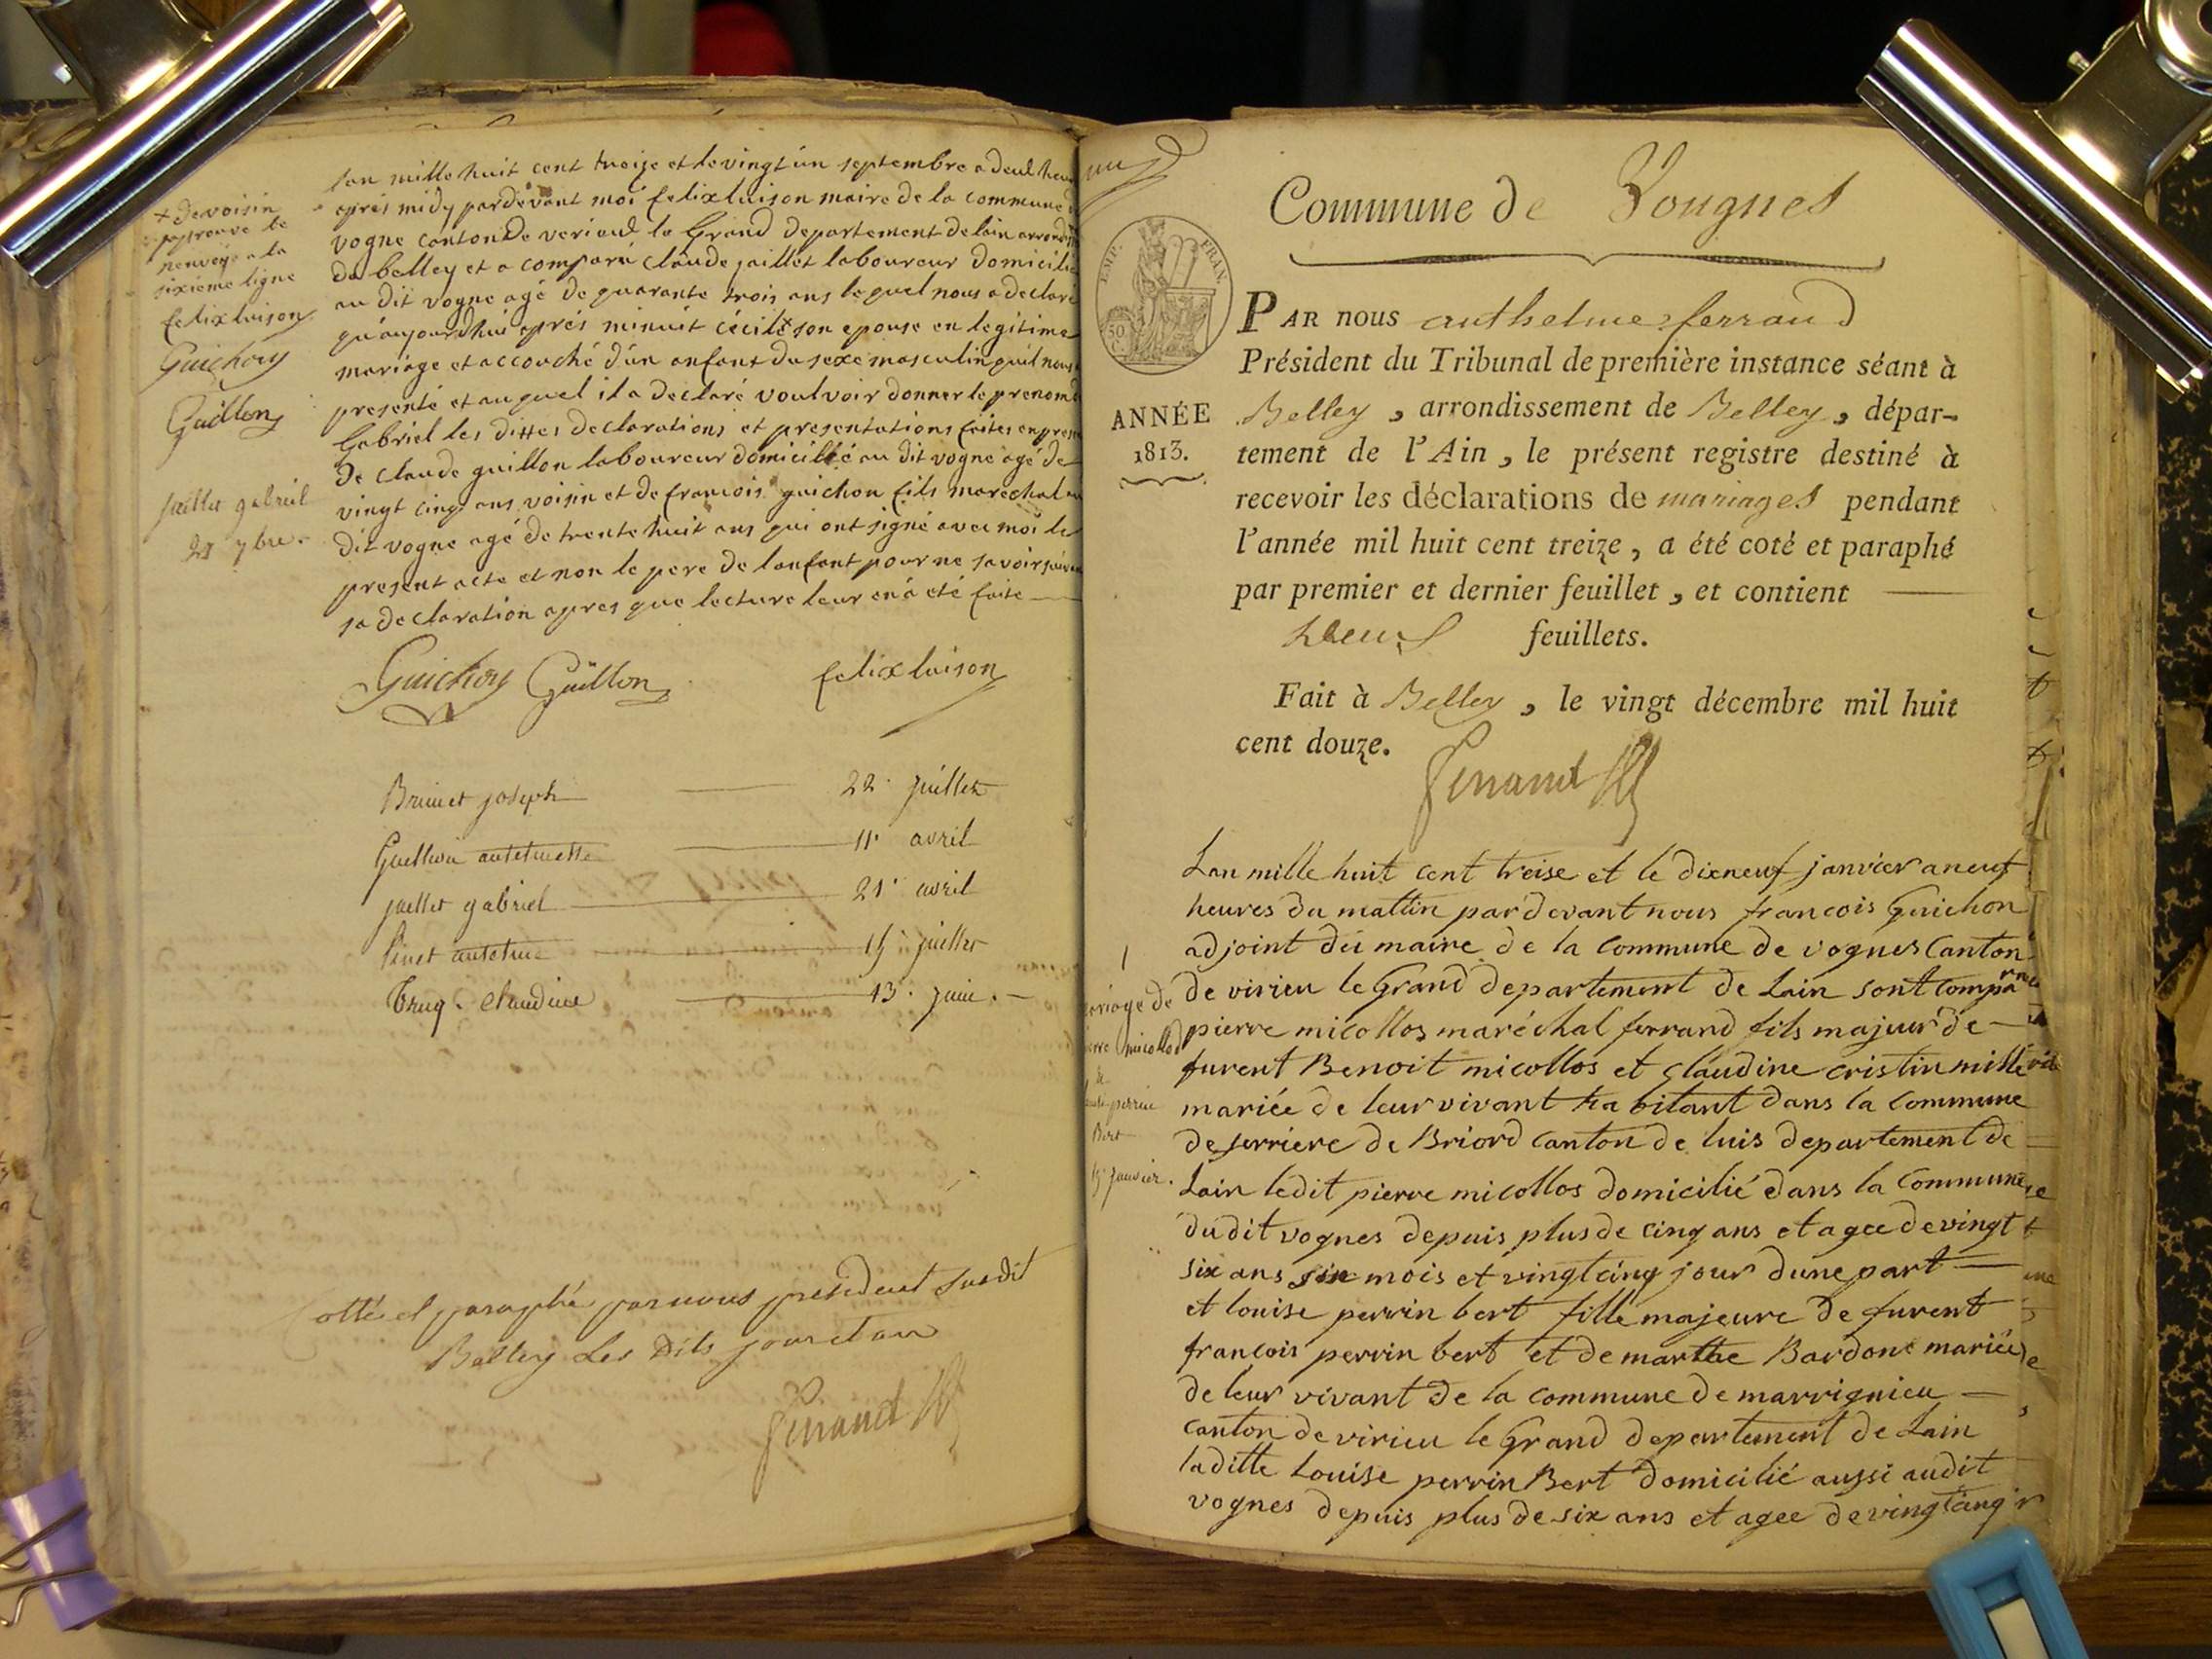 + devoisin
approuve le
renvoye a la
sixieme ligne
felix luison
Guichon
Guillon
jaillet gabriel
21 7bre.
lan mille huit cent treize et le vingt un septembre a deux heur
aprés midy pardevant moi felix luison maire de la commune
vogne canton de verieux le Grand departement de lain arrondis
de belley et a comparu claude jaillet laboureur domicilié
au dit vogne agé de quarante trois ans lequel nous a declaré
qu'aujourdhui aprés minuit cécile + son epouse en legitime
mariage et accouché d'un anfant du sexe masculin quil nous
presenté et auquel il a declaré voulvoir donner le prenom d
Gabriel les dittes declarations et presentations faites en pres
de claude guillon laboureur domicillié au dit vogne agé de
vingt cinq ans voisin et de francois guichon fils marechal
dit vogne agé de trente huit ans qui ont signé avec moi le
present acte et non le pere de lanfant pour ne savoir
sa declaration apres que lecture leur en a eté faite
Guichon Guillon felix luison
Brunet joseph 22. juillet
Guillon antelmette 11. avril
jaillet gabriel 21. avril
Pinet antelme 15. juillet
Truq. Claudine 13. juin.
Cotté et paraphé par nous président susdit
Belley les dits jour et an
ferrand
un
Commune de Vougnes
EMP. FRAN.
50 C.
ANNÉE
1813.
PAR nous anthelme ferrand
Président du Tribunal de première instance séant à
Belley, arrondissement de Belley, dépar-
tement de l'Ain, le présent registre destiné à
recevoir les déclarations de mariages pendant
l'année mil huit cent treize, a été coté et paraphé
par premier et dernier feuillet, et contient
deux feuillets.
Fait à Belley, le vingt décembre mil huit
cent douze.
ferrand
1
ariage de
erre micollod
&
louise perrin
Bert
19 janvier.
Lan mille huit cent treise et le dixneuf janvier a neuf
heures du mattin pardevant nous francois Guichon
adjoint du maire de la commune de vognes Canton
de virieu le Grand departement de Lain sont comparru
pierre micollos maréchal ferrand fils majeur de
furent Benoit micollos et claudine cristin mille
mariée de leur vivant habitant dans la commune
de serriere de Briord canton de luis departement de
Lain ledit pierre micollos domicilié dans la Commune
dudit vognes depuis plus de cinq ans et agee de vingt
six ans six mois et vingt cinq jour dune part
et louise perrin bert fille majeure de furent
francois perrin bert et de marthe Bardone mariée
de leur vivant de la commune de marrignieu
canton de virieu le Grand departement de Lain
la ditte Louise perrin Bert domicilié aussi audit
vognes depuis plus de six ans et agee de vingt cinq